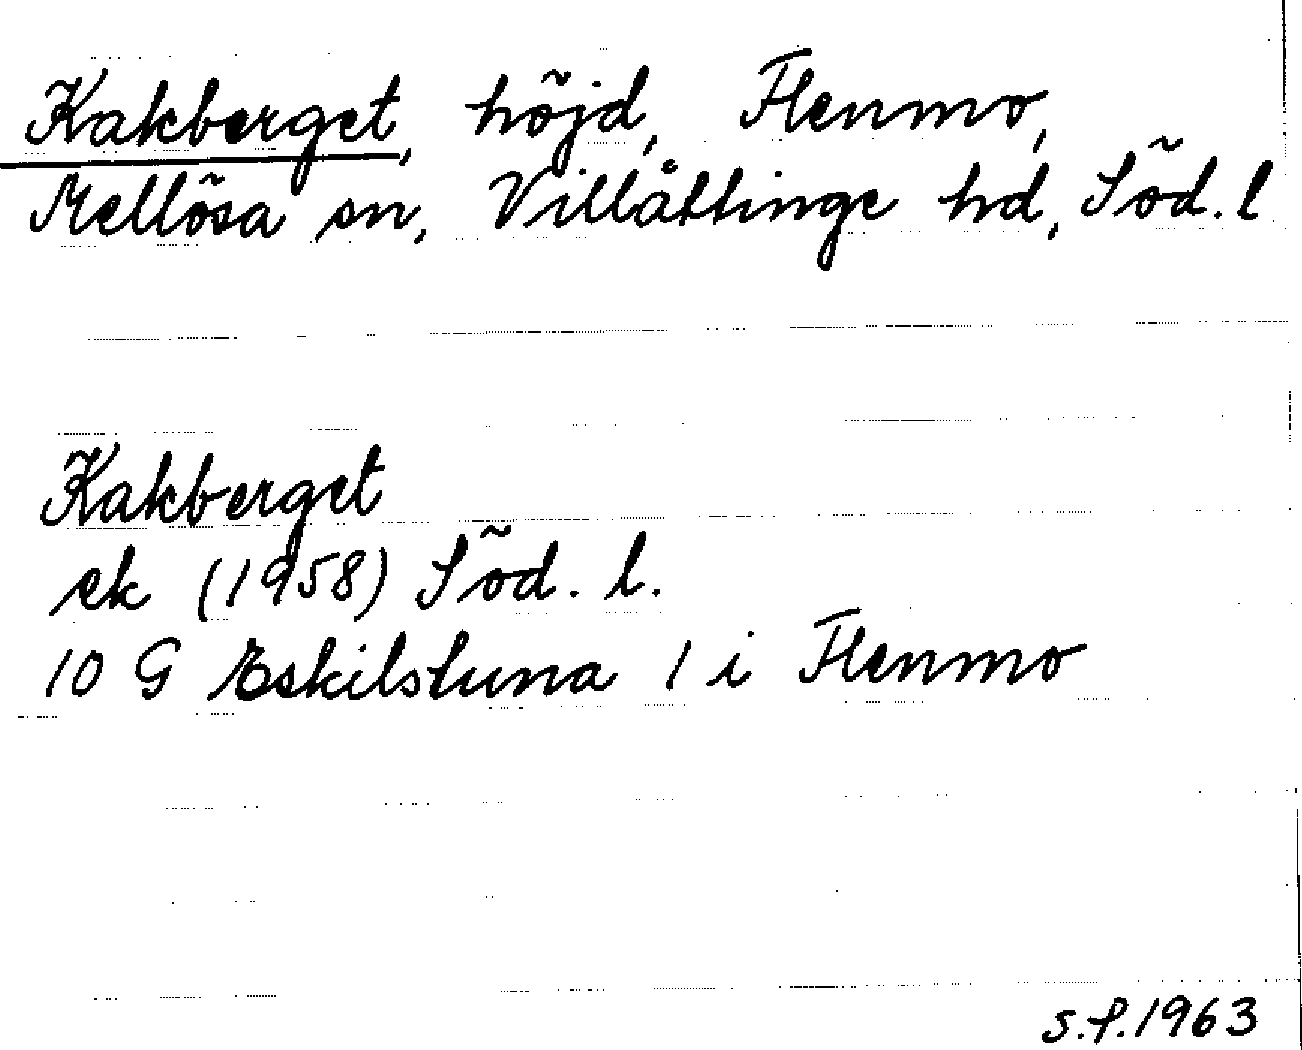 Kakberget, höjd, Flenmo,
Mellösa sn, Villåttinge hd, Söd. l
Kakberget
ek (1958) Söd. l.
10 G Eskilstuna 1 i Flenmo
S.P.1963